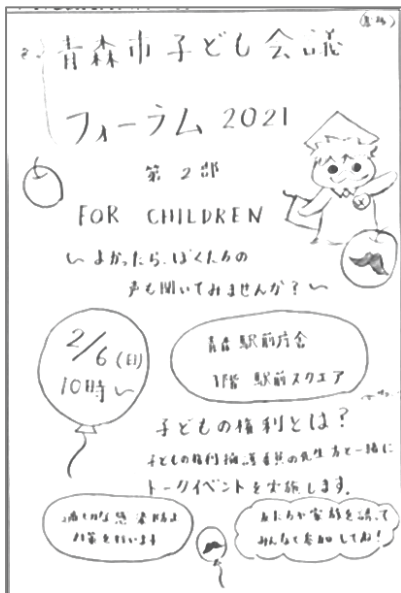 青森市子ども会議
フォーラム 2021
第2部
FOR CHILDREN
〜よかったら、ぼくたちの
声も聞いてみませんか?〜
2/6(日)
10時〜
青森駅前庁舎
1階 駅前スクエア
子どもの権利とは?
子どもの権利擁護委員の先生方と一緒に
トークイベントを実施します。
適切な感染防止
対策を行います
友だちや家族を誘って
みんなで参加してね!